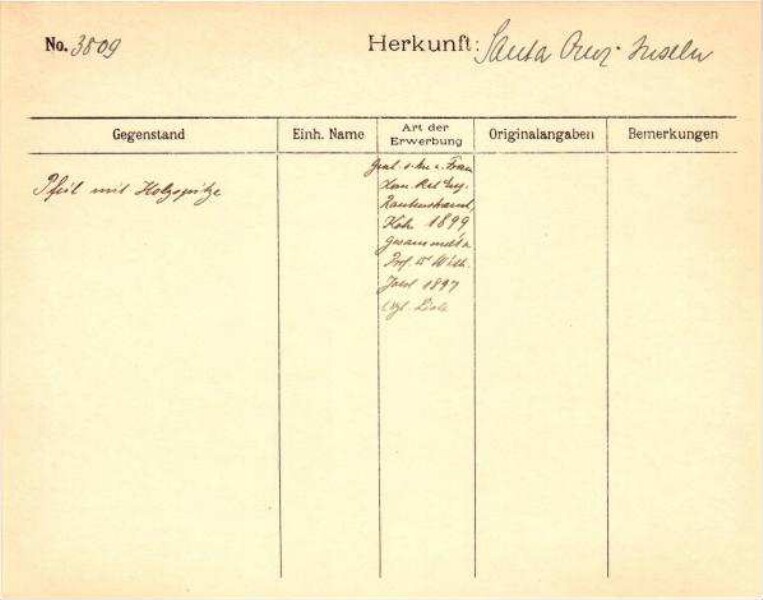 No. 3809 Herkunft: Santa Cruz-Inseln
Gegenstand Einh. Name Art der Erwerbung Originalangaben Bemerkungen
Pfeil mit Holzspitze
Frau
Rautenstrauch,
1899
gesammelt v.
Prof. Dr Wilh.
Joest 1897
Vgl. Liste